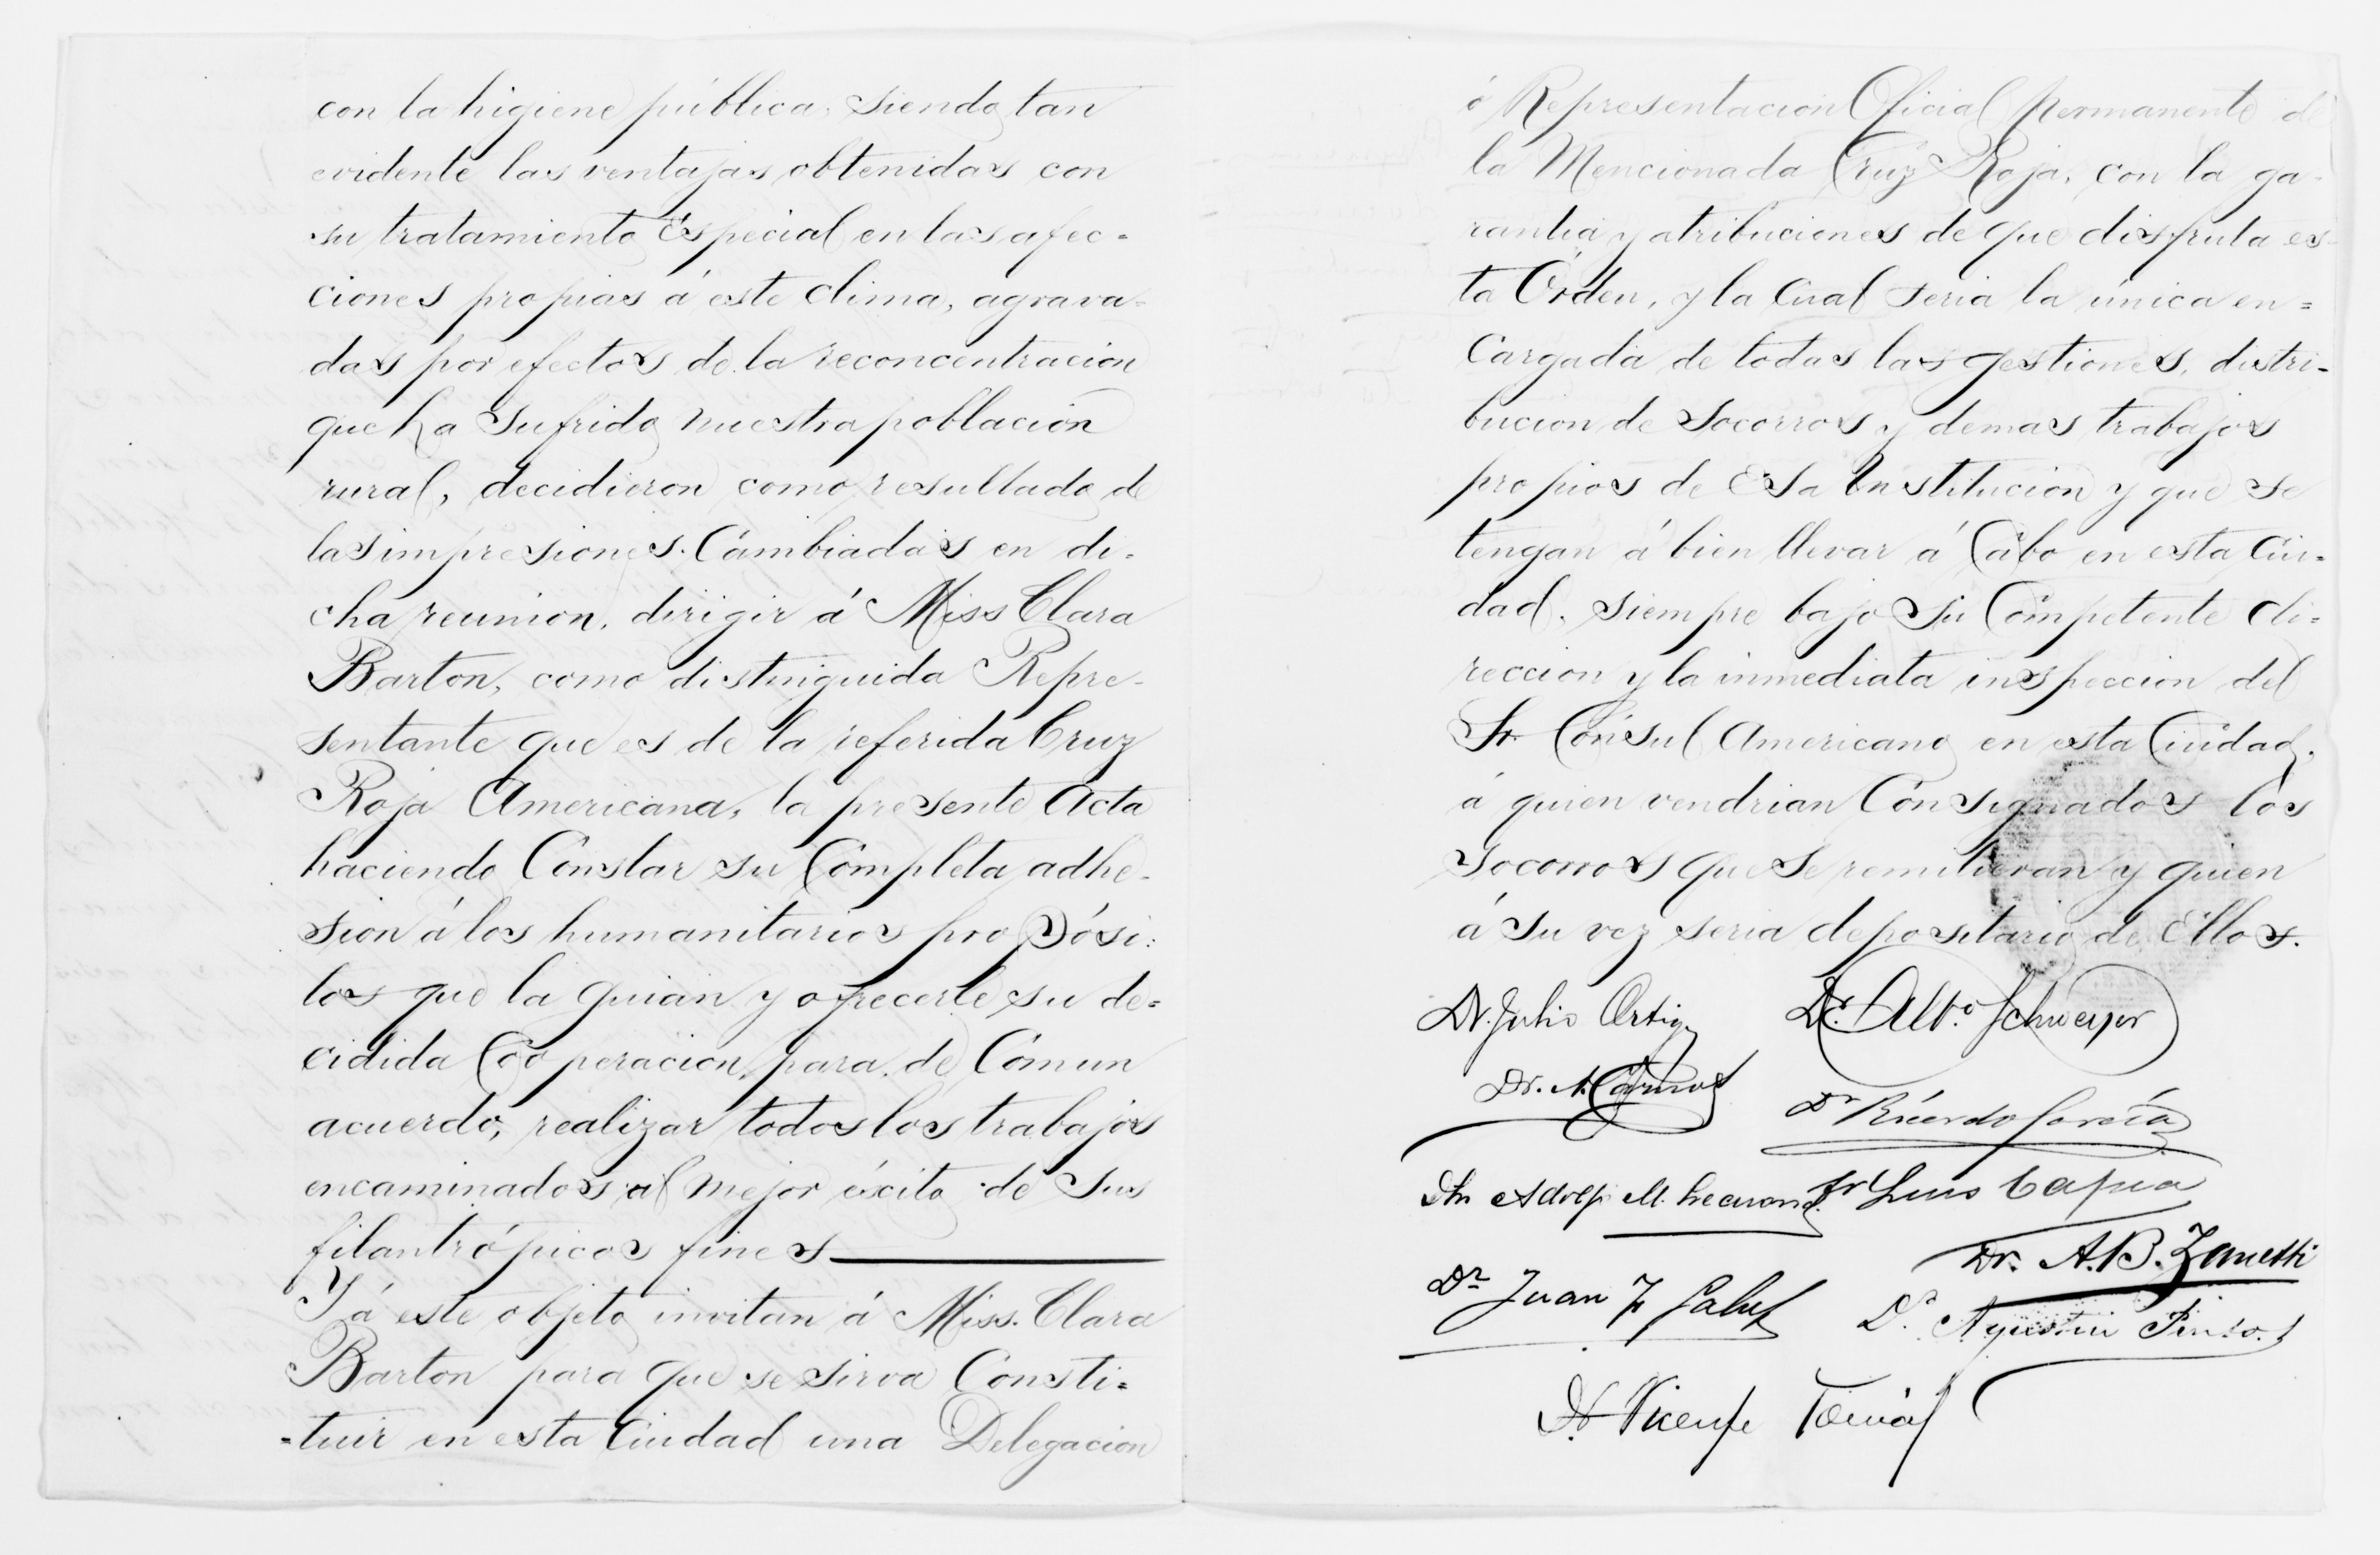 con la higiene pública, siendo tan
evidente las ventajas obtenidas con
su tratamiento Especial en las afec=
ciones propias á este clima, agrava=
das por efectos de la reconcentracion
que ha sufrido nuestra poblacion
rural, decidieron como resultado de
las impresiones Cambiadas en di=
cha reunion, dirigir á Miss Clara
Barton, como distinguida Repre-
sentante que es de la referida Cruz
Roja Americana, la presente Acta
haciendo Constar su Completa adhe-
sion á los humanitarios propósi=
tos que la guian y ofrecerle su de=
cidida Cooperacion, para, de Comun
acuerdo, realizar todos los trabajos
encaminados al mejor écsito de Sus
filantrópicos fines
Y á este objeto invitan á Miss. Clara
Barton para que se sirva Consti=
=tuir en esta Ciudad una Delegacion
ó Representacion Oficial permanente de
la Mencionada Cruz Roja, con la ga-
rantia y atribuciones de que disfruta es-
ta Orden, y la Cual seria la única en=
Cargada de todas las gestiones, distri-
bucion de Socorros y demas trabajos
propios de Esa Institucion y que se
tengan á bien llevar á Cabo en esta Ciu=
dad, siempre bajo Su Competente di=
reccion y la inmediata inspeccion del
Sr. Cónsul Americano en esta Ciudad,
á quien vendrian Consignados los
socorros que Se remitieran y quien
á Su vez seria depositario de Ellos.
Dr. Julio Ortiz Dr. Alb.º Schweyer
Dr. A.
Dr Ricardo García
Dr Luis Capua
Dr. A. B. Zanetti
Dr Juan F
Dr. Agustin
Dr Vicente Tomás